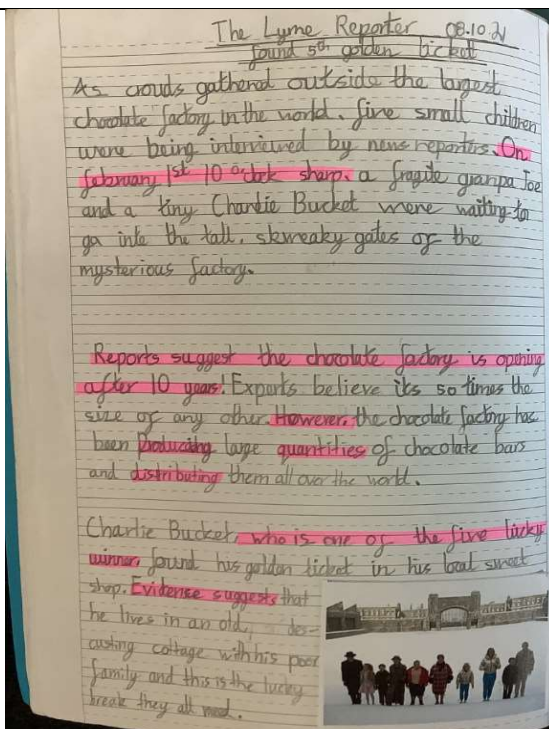 The Lyme Reporter 08.10.21
found 5th golden ticket
As crouds gathered outside the largest
chocolate factory in the world. five small children
were being interviewed by news reporters. On
february 1st 10 o'clock sharp. a fragile granpa Joe
and a tiny Charlie Bucket were waiting to
go into the tall, skweaky gates of the
mysterious factory.
Reports suggest the chocolate factory is opening
after 10 years! Experts believe its 50 times the
size of any other. However, the chocolate factory has
been producing large quantities of chocolate bars
and distributing them all over the world.
Charlie Bucket, who is one of the five lucky
winner, found his golden ticket in his local sweet
shop. Evidence suggests that
he lives in an old, des-
custing cottage with his poor
family and this is the lucky
break they all